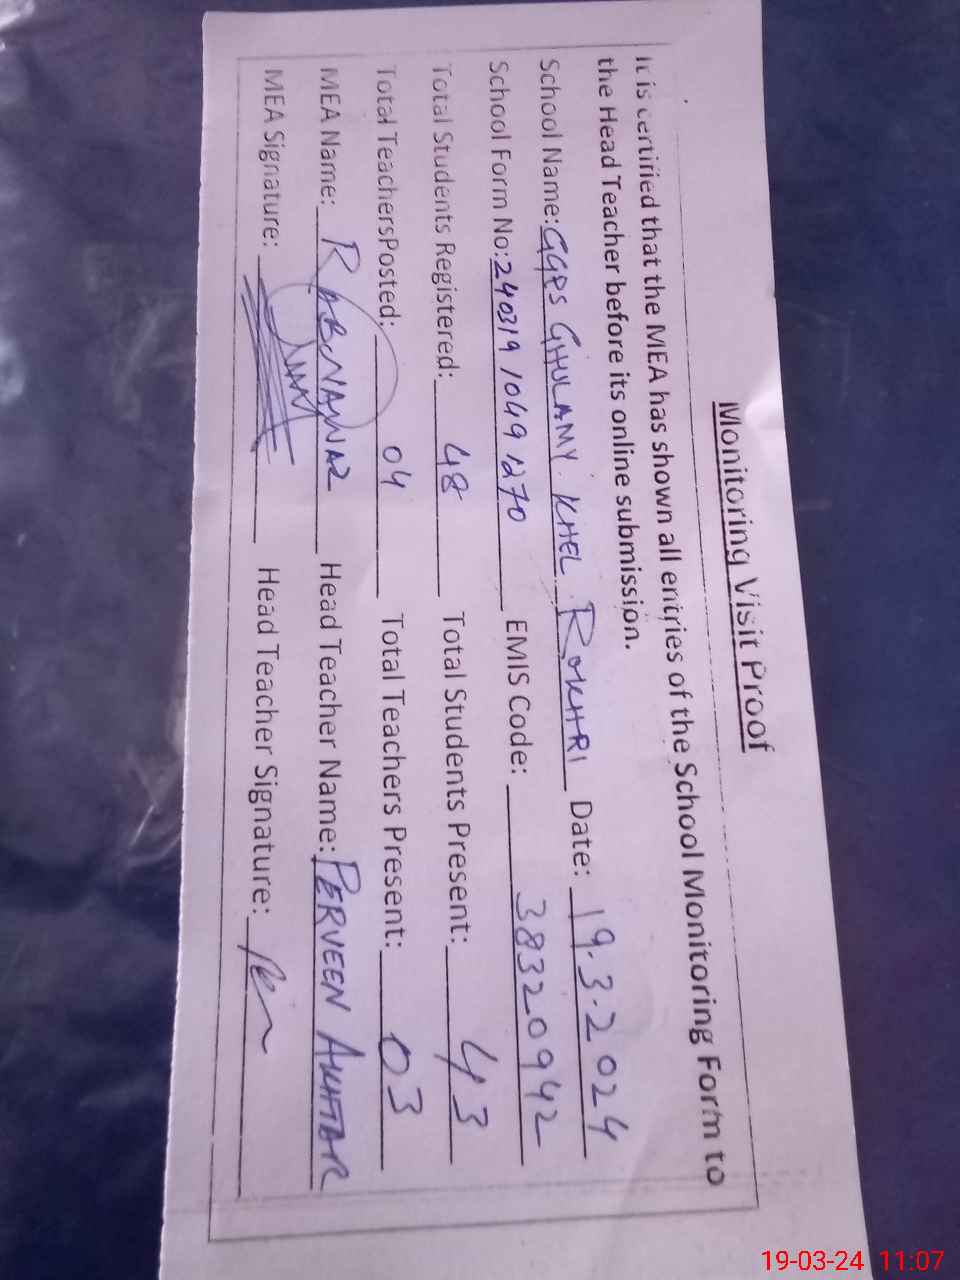 Monitoring Visit Proof
It is certified that the MEA has shown all entries of the School Monitoring Form to
the Head Teacher before its online submission.
School Name: GGPS GHULAMY KHEL ROKHRI Date: 19.3.2024
School Form No: 240319 1049 1270 EMIS Code: 38320942
Total Students Registered: 48 Total Students Present: 43
Total TeachersPosted: 04 Total Teachers Present: 03
MEA Name: RABNAWAZ Head Teacher Name: PERVEEN AKHTAR
MEA Signature: Head Teacher Signature:
19-03-24 11:07